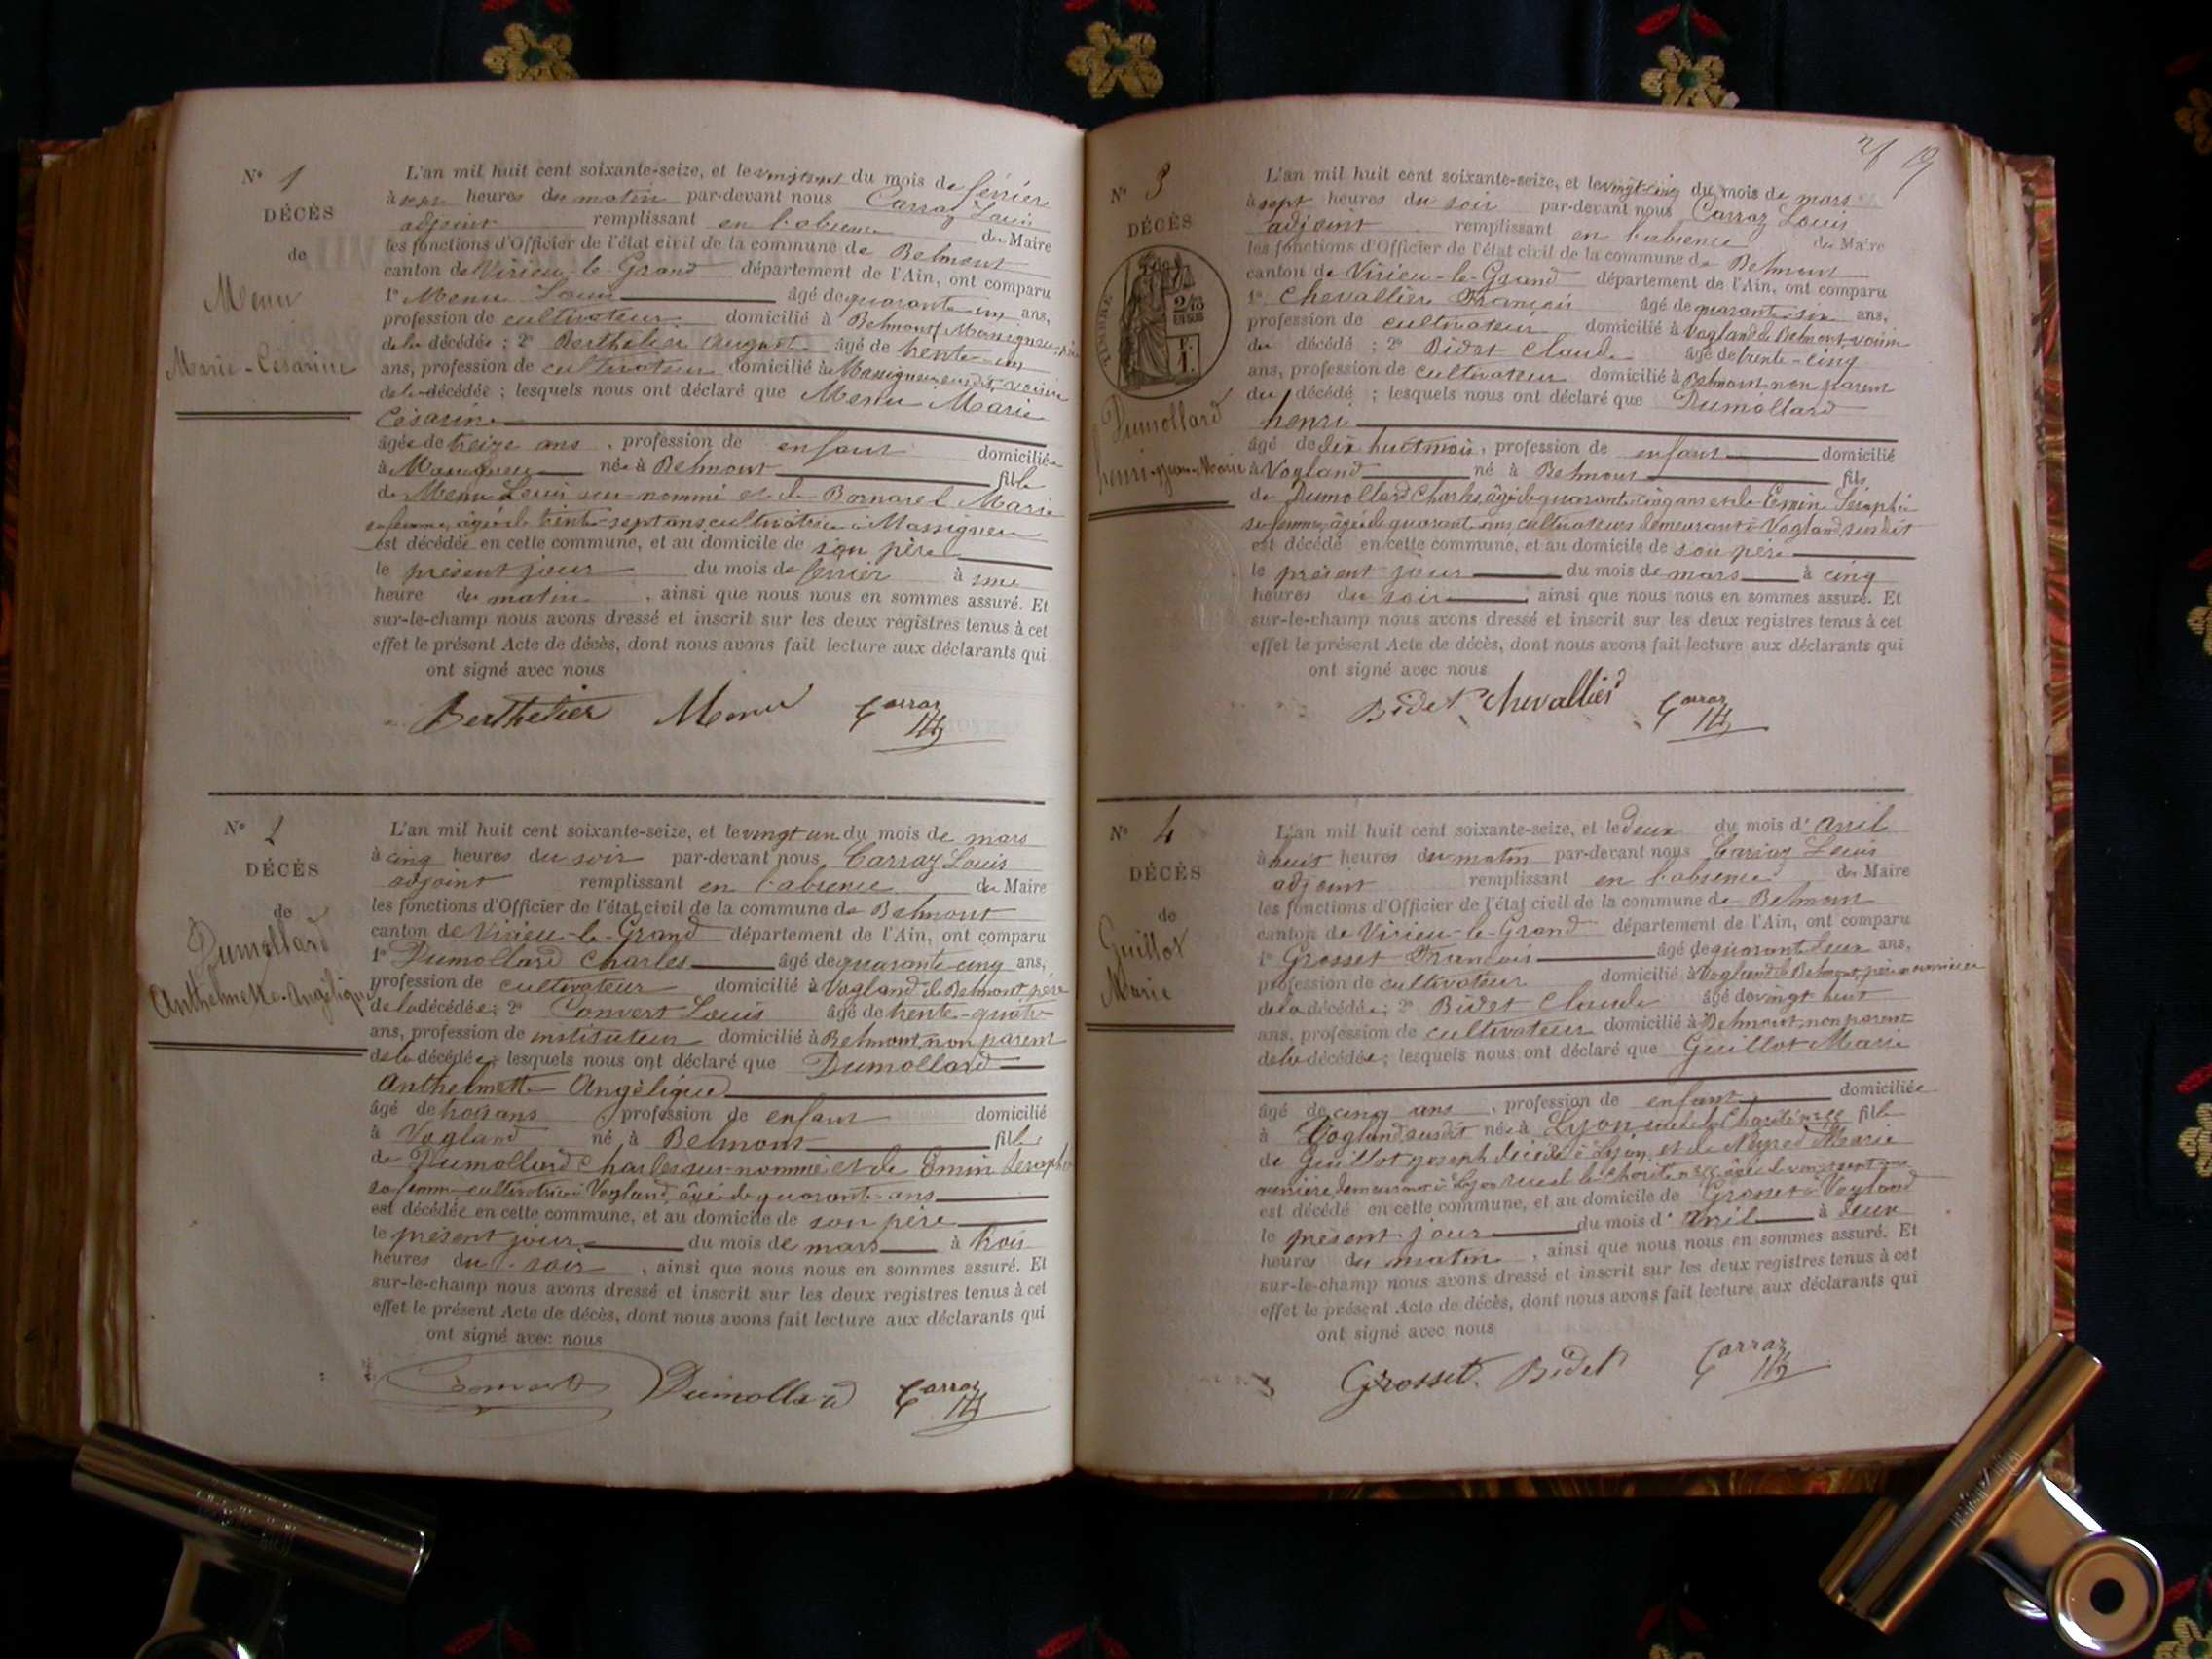 Nº 1
DÉCÈS
de
Menu
Marie-Césarine
L'an mil huit cent soixante-seize, et le du mois de février
à heures du matin par-devant nous Carraz Louis
adjoint remplissant en l'absence du Maire
les fonctions d'Officier de l'état civil de la commune de Belmont
canton de Virieu-le-Grand département de l'Ain, ont comparu
1º Menu Louis âgé de quarante-un ans,
profession de cultivateur domicilié à Belmont Massigneu, père
de la décédée ; 2º Berthelier August âgé de trente-un
ans, profession de cultivateur domicilié à Massigneu susdit, voisin
de la décédée ; lesquels nous ont déclaré que Menu Marie
Césarine
âgée de treize ans , profession de enfant domiciliée
à Massigneu née à Belmont fille
de Menu Louis sus-nommé et de Bornarel Marie
sa femme, âgée de trente-sept ans, cultivatrice à Massigneu
est décédée en cette commune, et au domicile de son père
le présent jour du mois de février à une
heure du matin , ainsi que nous nous en sommes assuré. Et
sur-le-champ nous avons dressé et inscrit sur les deux registres tenus à cet
effet le présent Acte de décès, dont nous avons fait lecture aux déclarants qui
ont signé avec nous
Berthelier Menu Carraz
Nº 2
DÉCÈS
de
Dumollard
Anthelmette-Angélique
L'an mil huit cent soixante-seize, et le vingt un du mois de mars
à cinq heures du soir par-devant nous, Carraz Louis
adjoint remplissant en l'absence du Maire
les fonctions d'Officier de l'état civil de la commune de Belmont
canton de Virieu-le-Grand département de l'Ain, ont comparu
1º Dumollard Charles âgé de quarante-cinq ans,
profession de cultivateur domicilié à Vogland de Belmont, père
de la décédée ; 2º Convert Louis âgé de trente-quatre
ans, profession de instituteur domicilié à Belmont, non parent
de la décédée ; lesquels nous ont déclaré que Dumollard
Anthelmette Angélique
âgé de trois ans , profession de enfant domicilié
à Vogland né à Belmont fille
de Dumollard Charles sus-nommé et de Emin Seraphie
sa femme cultivatrice à Vogland, âgée de quarante ans
est décédée en cette commune, et au domicile de son père
le présent jour du mois de mars à trois
heures du soir , ainsi que nous nous en sommes assuré. Et
sur-le-champ nous avons dressé et inscrit sur les deux registres tenus à cet
effet le présent Acte de décès, dont nous avons fait lecture aux déclarants qui
ont signé avec nous
Convert Dumollard Carraz
19
Nº 3
DÉCÈS
TIMBRE
2/10
EN SUS
F.
1.
Dumollard
henri-Jean-Marie
L'an mil huit cent soixante-seize, et le vingt-cinq du mois de mars
à sept heures du soir par-devant nous Carraz Louis
adjoint remplissant en l'absence du Maire
les fonctions d'Officier de l'état civil de la commune de Belmont
canton de Virieu-le-Grand département de l'Ain, ont comparu
1º Chevallier François âgé de quarante-six ans,
profession de cultivateur domicilié à Vogland de Belmont, voisin
du décédé ; 2º Bidet Claude âgé de trente-cinq
ans, profession de cultivateur domicilié à Belmont non parent
du décédé ; lesquels nous ont déclaré que Dumollard
henri
âgé de dix huit mois , profession de enfant domicilié
à Vogland né à Belmont fils
de Dumollard Charles, âgé de quarante-cinq ans et de Emin Séraphie
sa femme, âgée de quarante ans, cultivateurs demeurant à Vogland, susdit
est décédé en cette commune, et au domicile de son père
le présent jour du mois de mars à cinq
heures du soir , ainsi que nous nous en sommes assuré. Et
sur-le-champ nous avons dressé et inscrit sur les deux registres tenus à cet
effet le présent Acte de décès, dont nous avons fait lecture aux déclarants qui
ont signé avec nous
Bidet Chevallier Carraz
Nº 4
DÉCÈS
de
Guillot
Marie
L'an mil huit cent soixante-seize, et le deux du mois d' avril
à huit heures du matin par-devant nous Carraz Louis
adjoint remplissant en l'absence du Maire
les fonctions d'Officier de l'état civil de la commune de Belmont
canton de Virieu-le-Grand département de l'Ain, ont comparu
1º Grosset François âgé de quarante deux ans,
profession de cultivateur domicilié à Vogland de Belmont, père nourricier
de la décédée ; 2º Bidet Claude âgé de vingt huit
ans, profession de cultivateur domicilié à Belmont, non parent
de la décédée ; lesquels nous ont déclaré que Guillot Marie
âgé de cinq ans , profession de enfant domiciliée
à Vogland susdit née à Lyon rue de la Charité fille
de Guillot Joseph décédé à Lyon, et de Marie
demeurant à Lyon rue de la Charité
est décédé en cette commune, et au domicile de Grosset à Vogland
le présent jour du mois d' avril à deux
heures du matin , ainsi que nous nous en sommes assuré. Et
sur-le-champ nous avons dressé et inscrit sur les deux registres tenus à cet
effet le présent Acte de décès, dont nous avons fait lecture aux déclarants qui
ont signé avec nous
Grosset Bidet Carraz